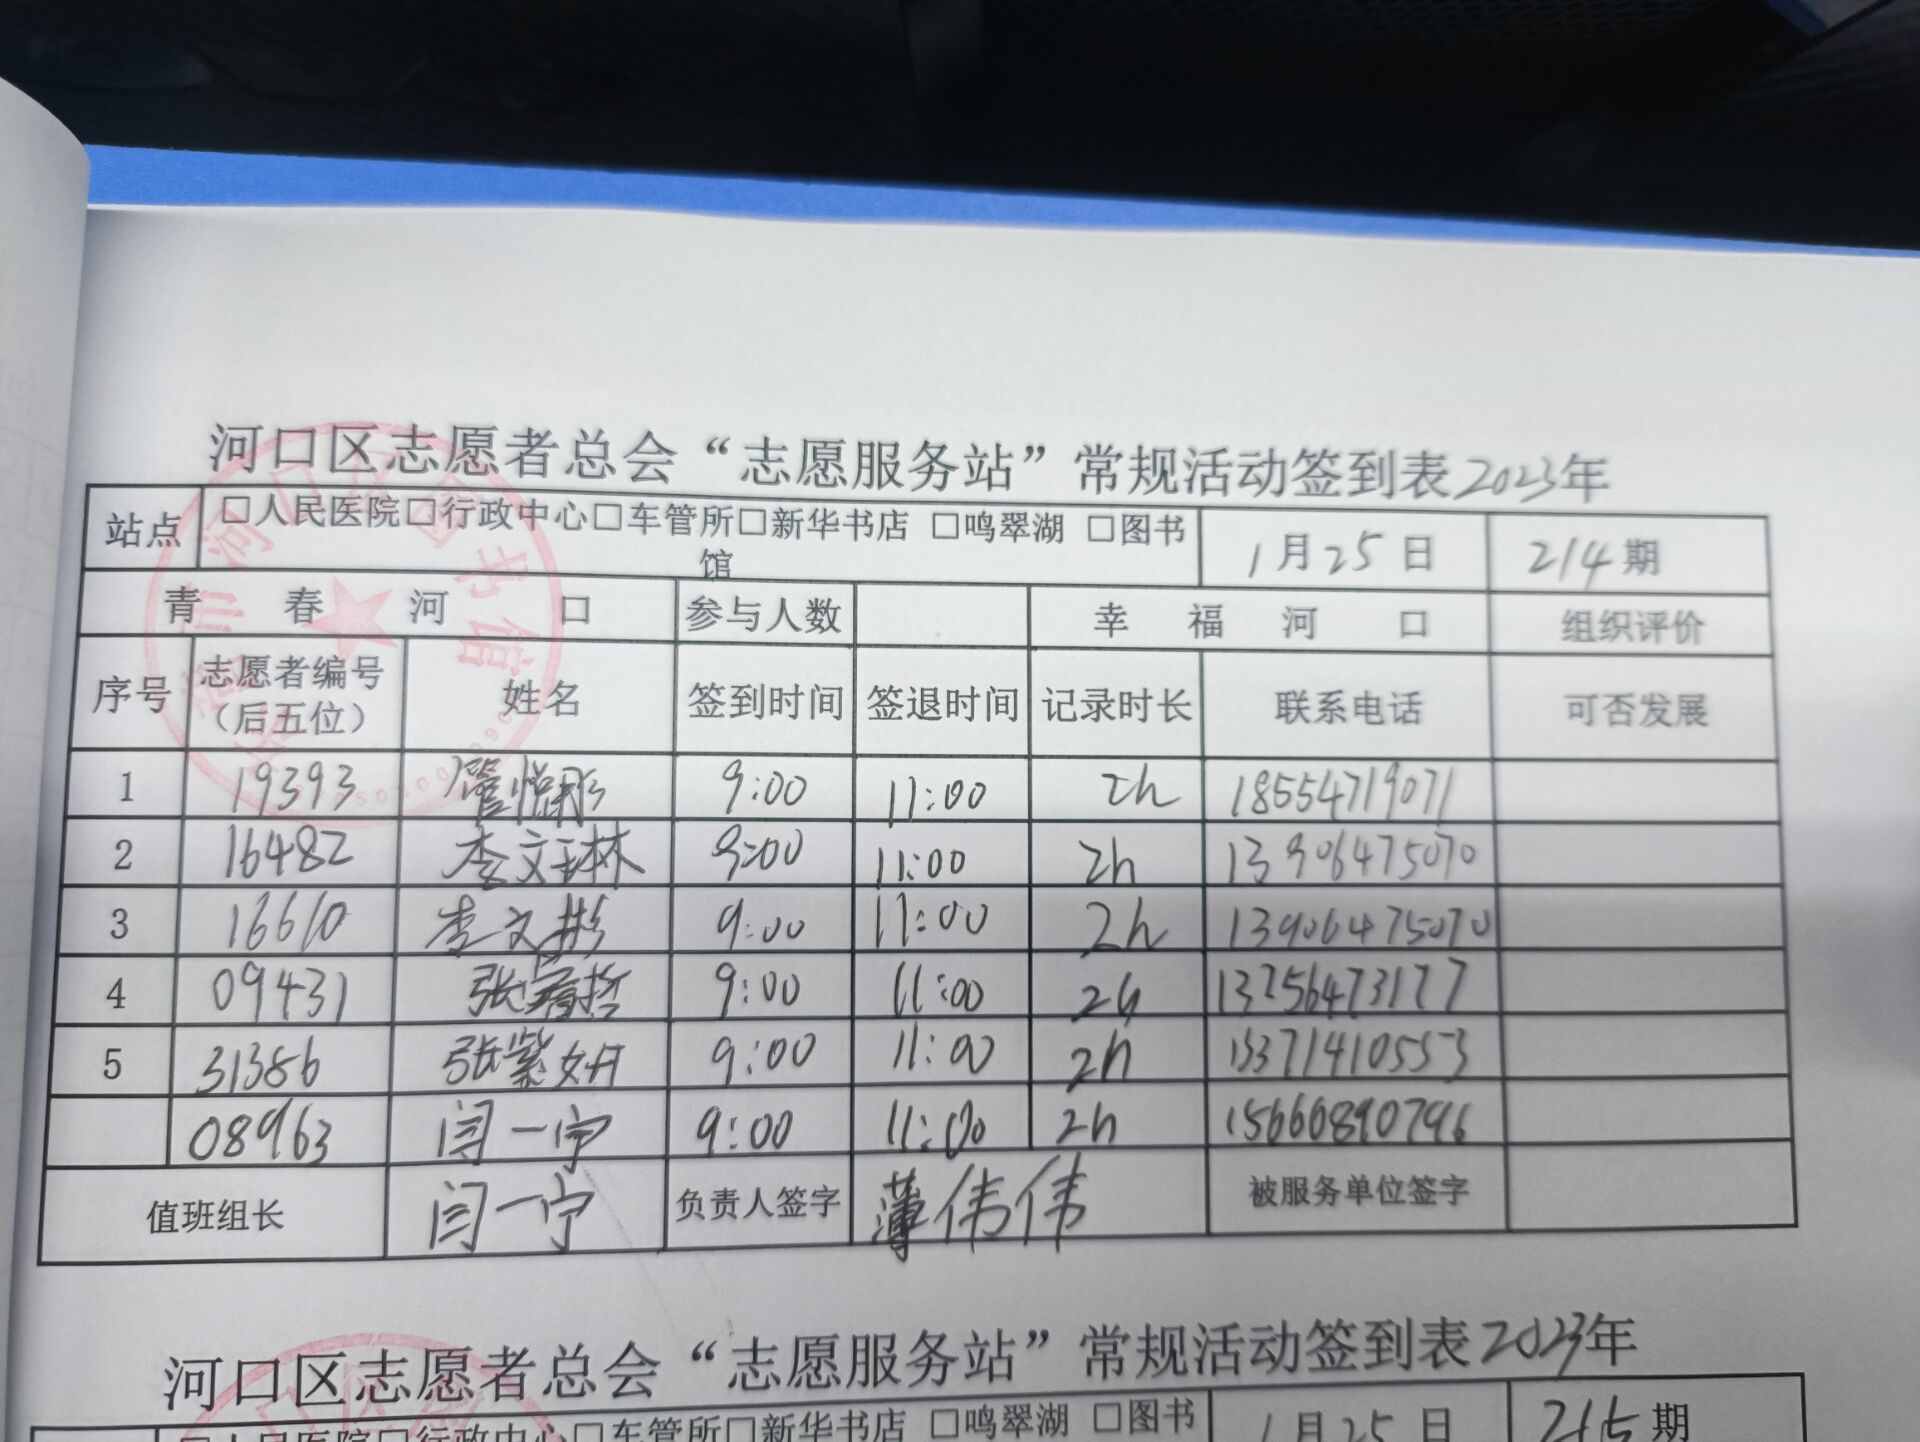 河口区志愿者总会“志愿服务站”常规活动签到表2023年
站点 □人民医院□行政中心□车管所□新华书店 □鸣翠湖 □图书馆 1月25日 214期
青春河口 参与人数 幸福河口 组织评价
序号 志愿者编号（后五位） 姓名 签到时间 签退时间 记录时长 联系电话 可否发展
1 19393 9:00 11:00 2h 18554719071
2 16482 李文琳 9:00 11:00 2h 13906475070
3 16610 李文彬 9:00 11:00 2h 13906475070
4 09431 9:00 11:00 2h
5 31386 张紫妍 9:00 11:00 2h 13371410553
08963 闫一宁 9:00 11:00 2h 15666890796
值班组长 闫一宁 负责人签字 薄伟伟 被服务单位签字
河口区志愿者总会“志愿服务站”常规活动签到表2023年
□人民医院□行政中心□车管所□新华书店 □鸣翠湖 □图书 1月25日 215期